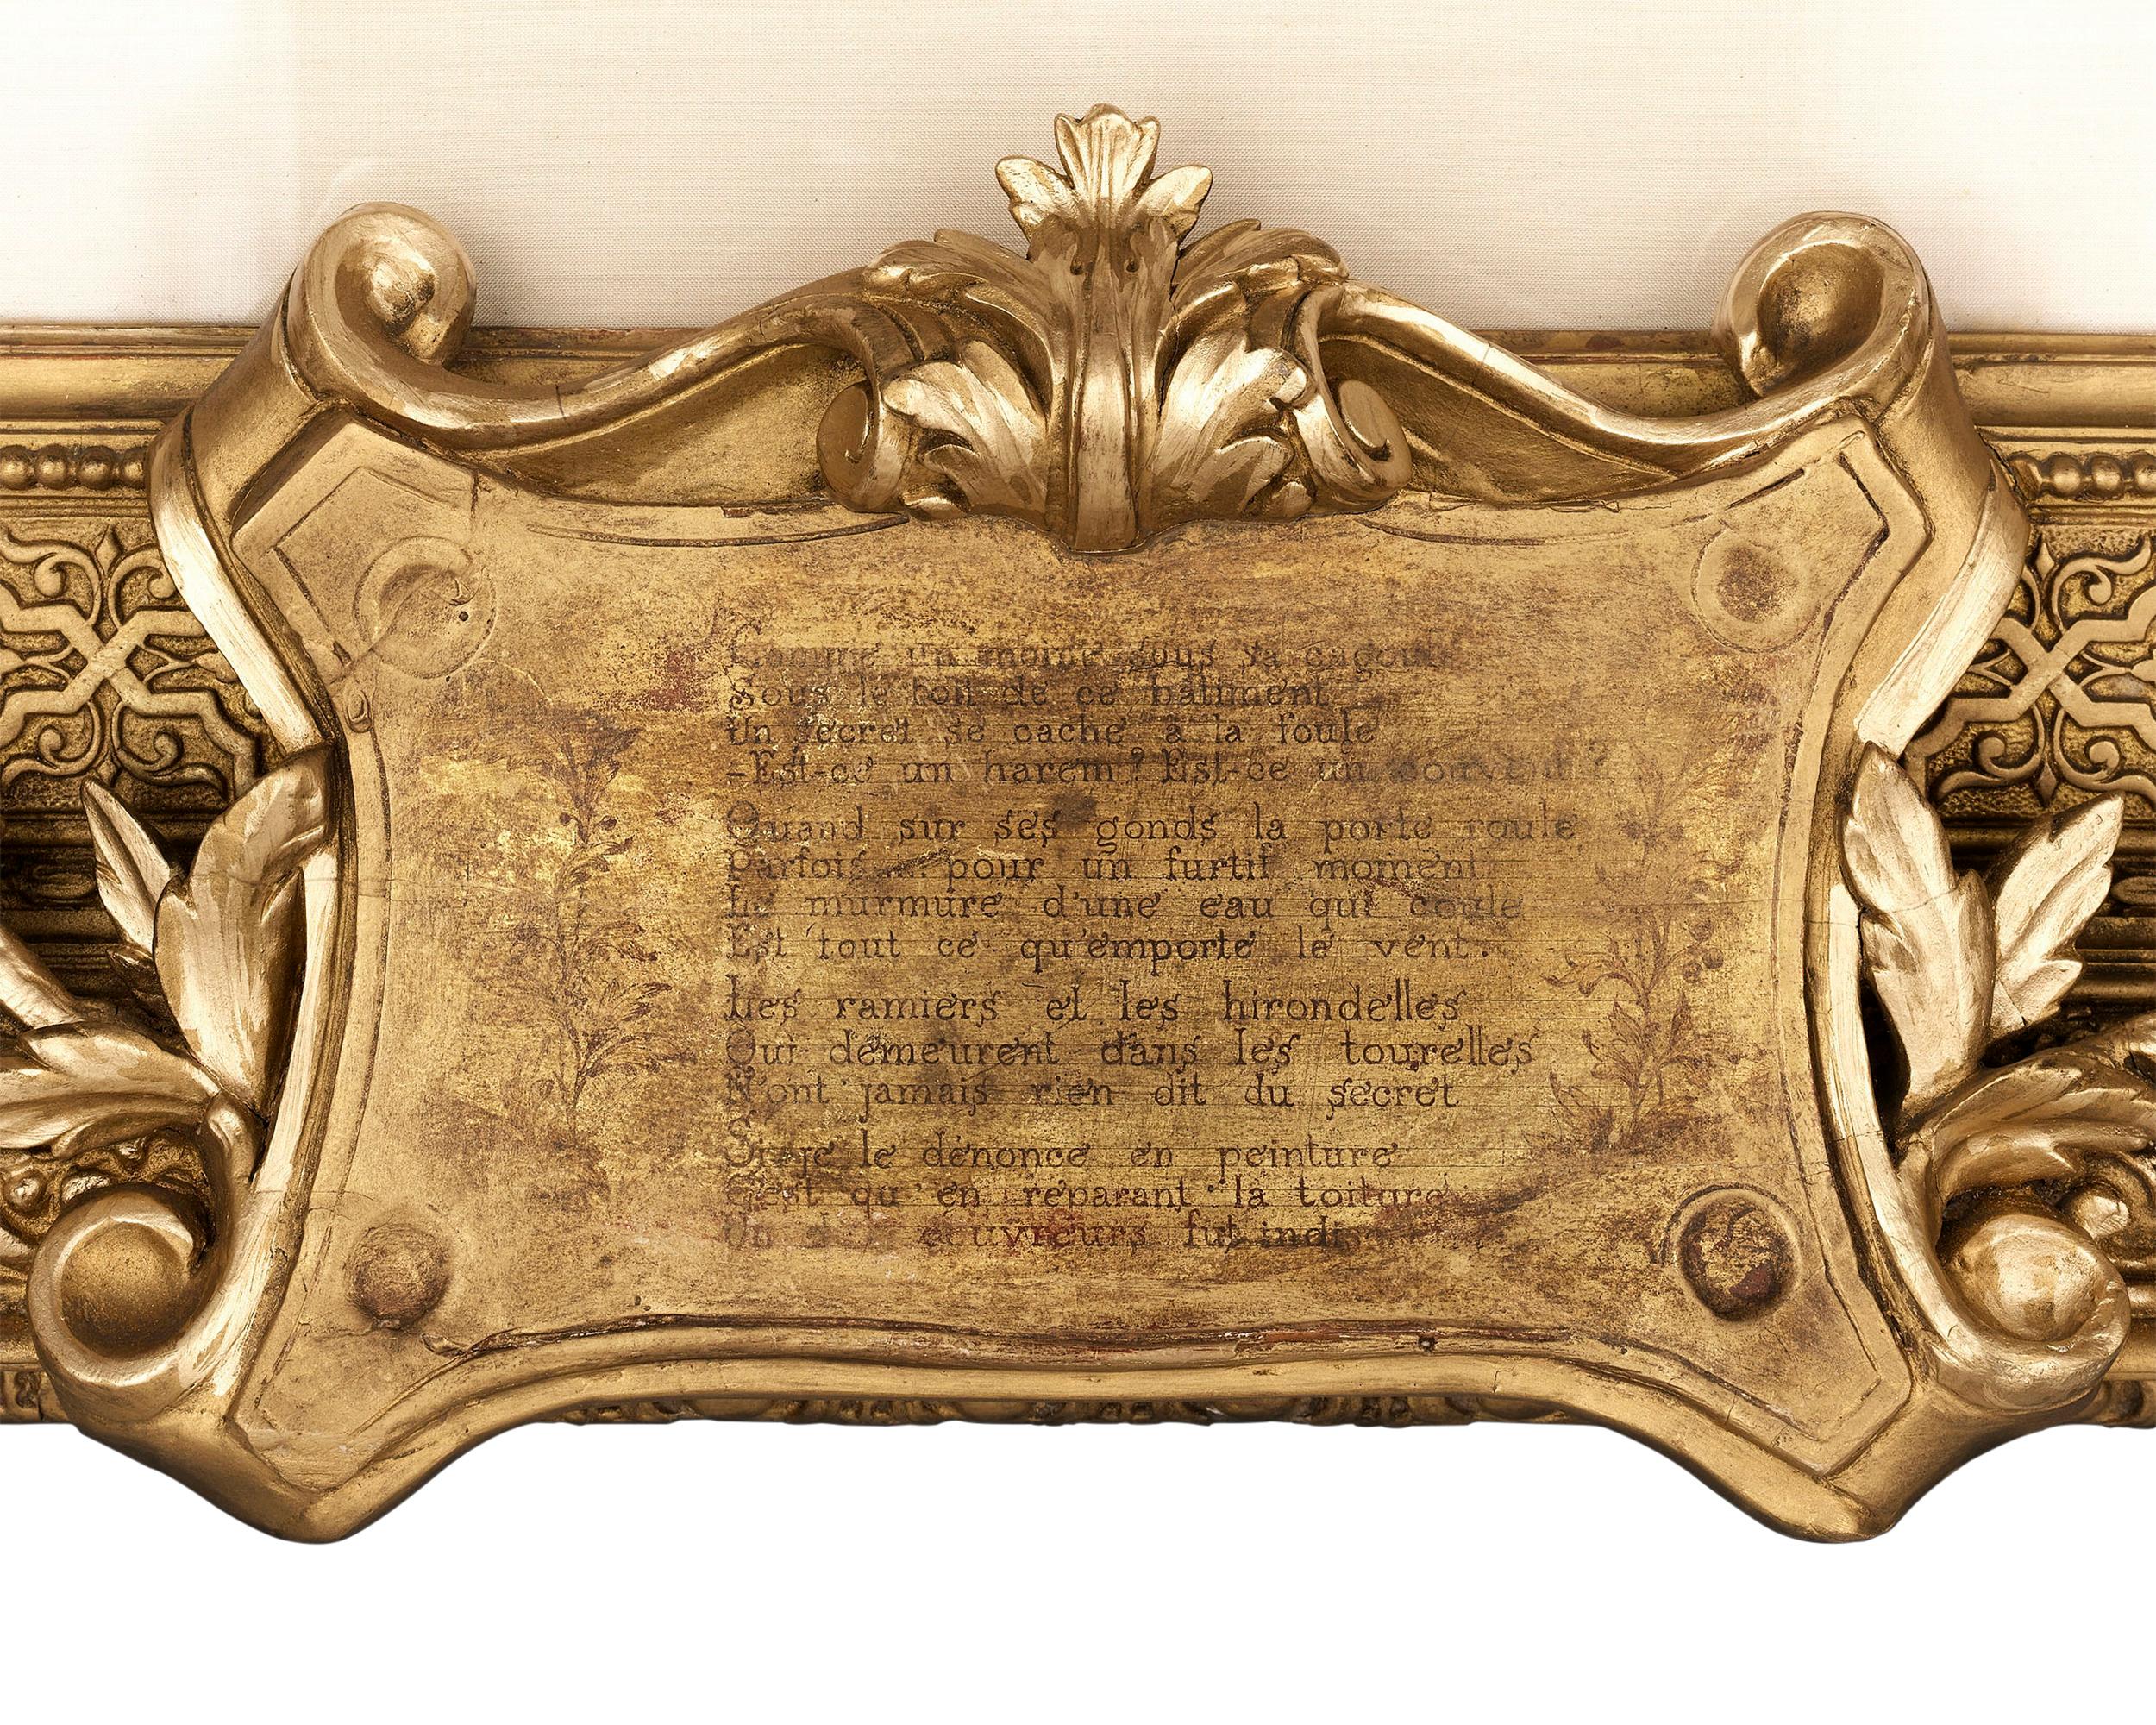 Comme un moine sous sa cagoule
Sous le toit de ce bâtiment
Un secret se cache à la foule
-Est-ce un harem? Est-ce un couvent?
Quand sur ses gonds la porte roule
Parfois... pour un furtif moment
Le murmure d'une eau qui coule
Est tout ce qu'emporte le vent.
Les ramiers et les hirondelles
Qui demeurent dans les tourelles
N'ont jamais rien dit du secret
Si je le dénonce en peinture
C'est qu'en réparant la toiture
Un couvreurs fut